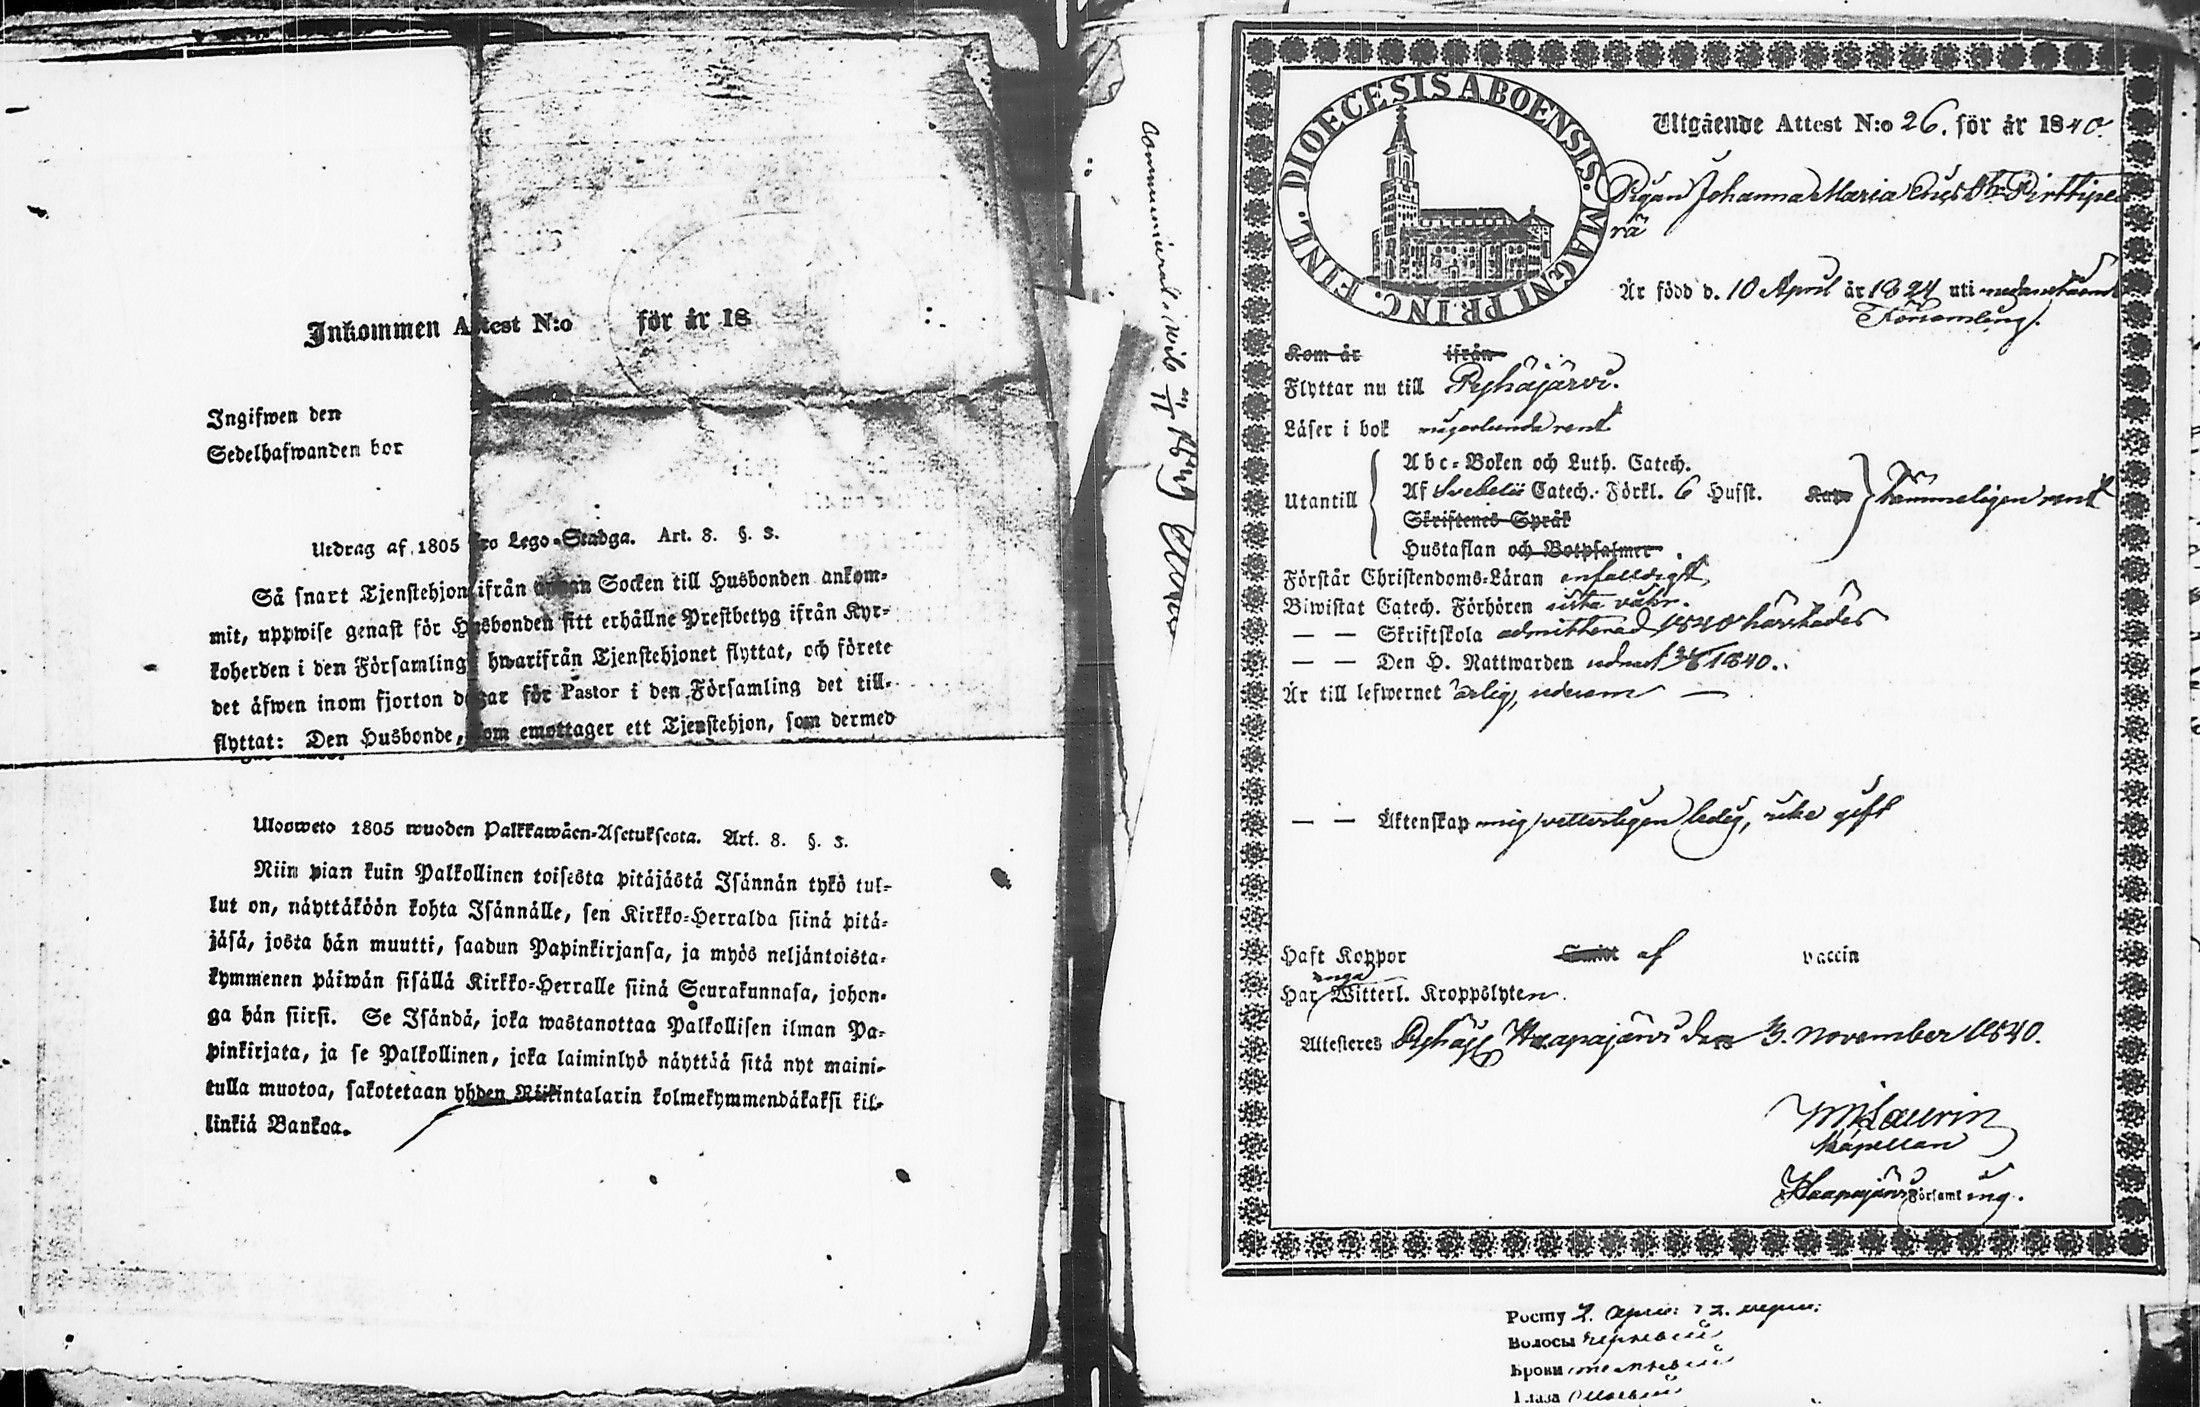 Inkommen Attest N:o för år 18
Ingifwen den
Sedelhafwanden bor
Utdrag af 1805 Lego-Stadga. Art. 8. §. 3.
Så snart Tjenstehjon ifrån Socken till Husbonden ankom-
mit, uppwise genast för Husbonden sitt erhållne Prestbetyg ifrån Kyr-
koherden i den Församling hwarifrån Tjenstehjonet flyttat, och förete
det äfwen inom fjorton dagar för Pastor i den Församling det till-
flyttat: Den Husbonde, som emottager ett Tjenstehjon, som dermed
Ulosweto 1805 wuoden Palkkawäen-Asetuksesta. Art. 8. §. 3.
Niin pian kuin Palkollinen toisesta pitäjästä Isännän tykö tul-
lut on, näyttäköön kohta Isännälle, sen Kirkko-Herralda siinä pitä-
jäsä, josta hän muutti, saadun Papinkirjansa, ja myös neljäntoista-
kymmenen päiwän sisällä Kirkko-Herralle siinä Seurakunnasa, johon-
ga hän siirsi. Se Isändä, joka wastanottaa Palkollisen ilman Pa-
pinkirjata, ja se Palkollinen, joka laiminlyö näyttää sitä nyt maini-
tulla muotoa, sakotetaan yhden Riikintalarin kolmekymmendäkaksi kil-
linkiä Bankoa.
DIOECESIS ABOENSIS. MAGNI PRINC. FINL.
Utgående Attest N:o 26. för år 1840.
Pigan Johanna Maria Pirttipe
rä
Är född d. 10 April år 1824 uti nedanstående
Församling.
Kom år ifrån
Flyttar nu till Pyhäjärvi.
Läser i bok någorlunda rent
Utantill
Abc-Boken och Luth. Catech.
Af Svebelii Catech. Förkl. 6 Hufst.
Skriftenes Språk
Hustaflan och Botpsalmer
hämmeligen rent
Förstår Christendoms-Läran enfalldigt
Biwistat Catech. Förhören sista
— — Skriftskola admitterad 1840 härstädes
— — Den H. Nattwarden 1840.
Är till lefwernet ärlig,
— — Äktenskap mig vetterligen ledig, icke gift
Haft Koppor af vaccin
inga
Har Witterl. Kroppslyten.
Attesteres Haapajärvi den 3. November 1840.
Laurin
Kapellan
Haapajärvi Församling.
Росту 2.
Волосы
Брови
Глаза